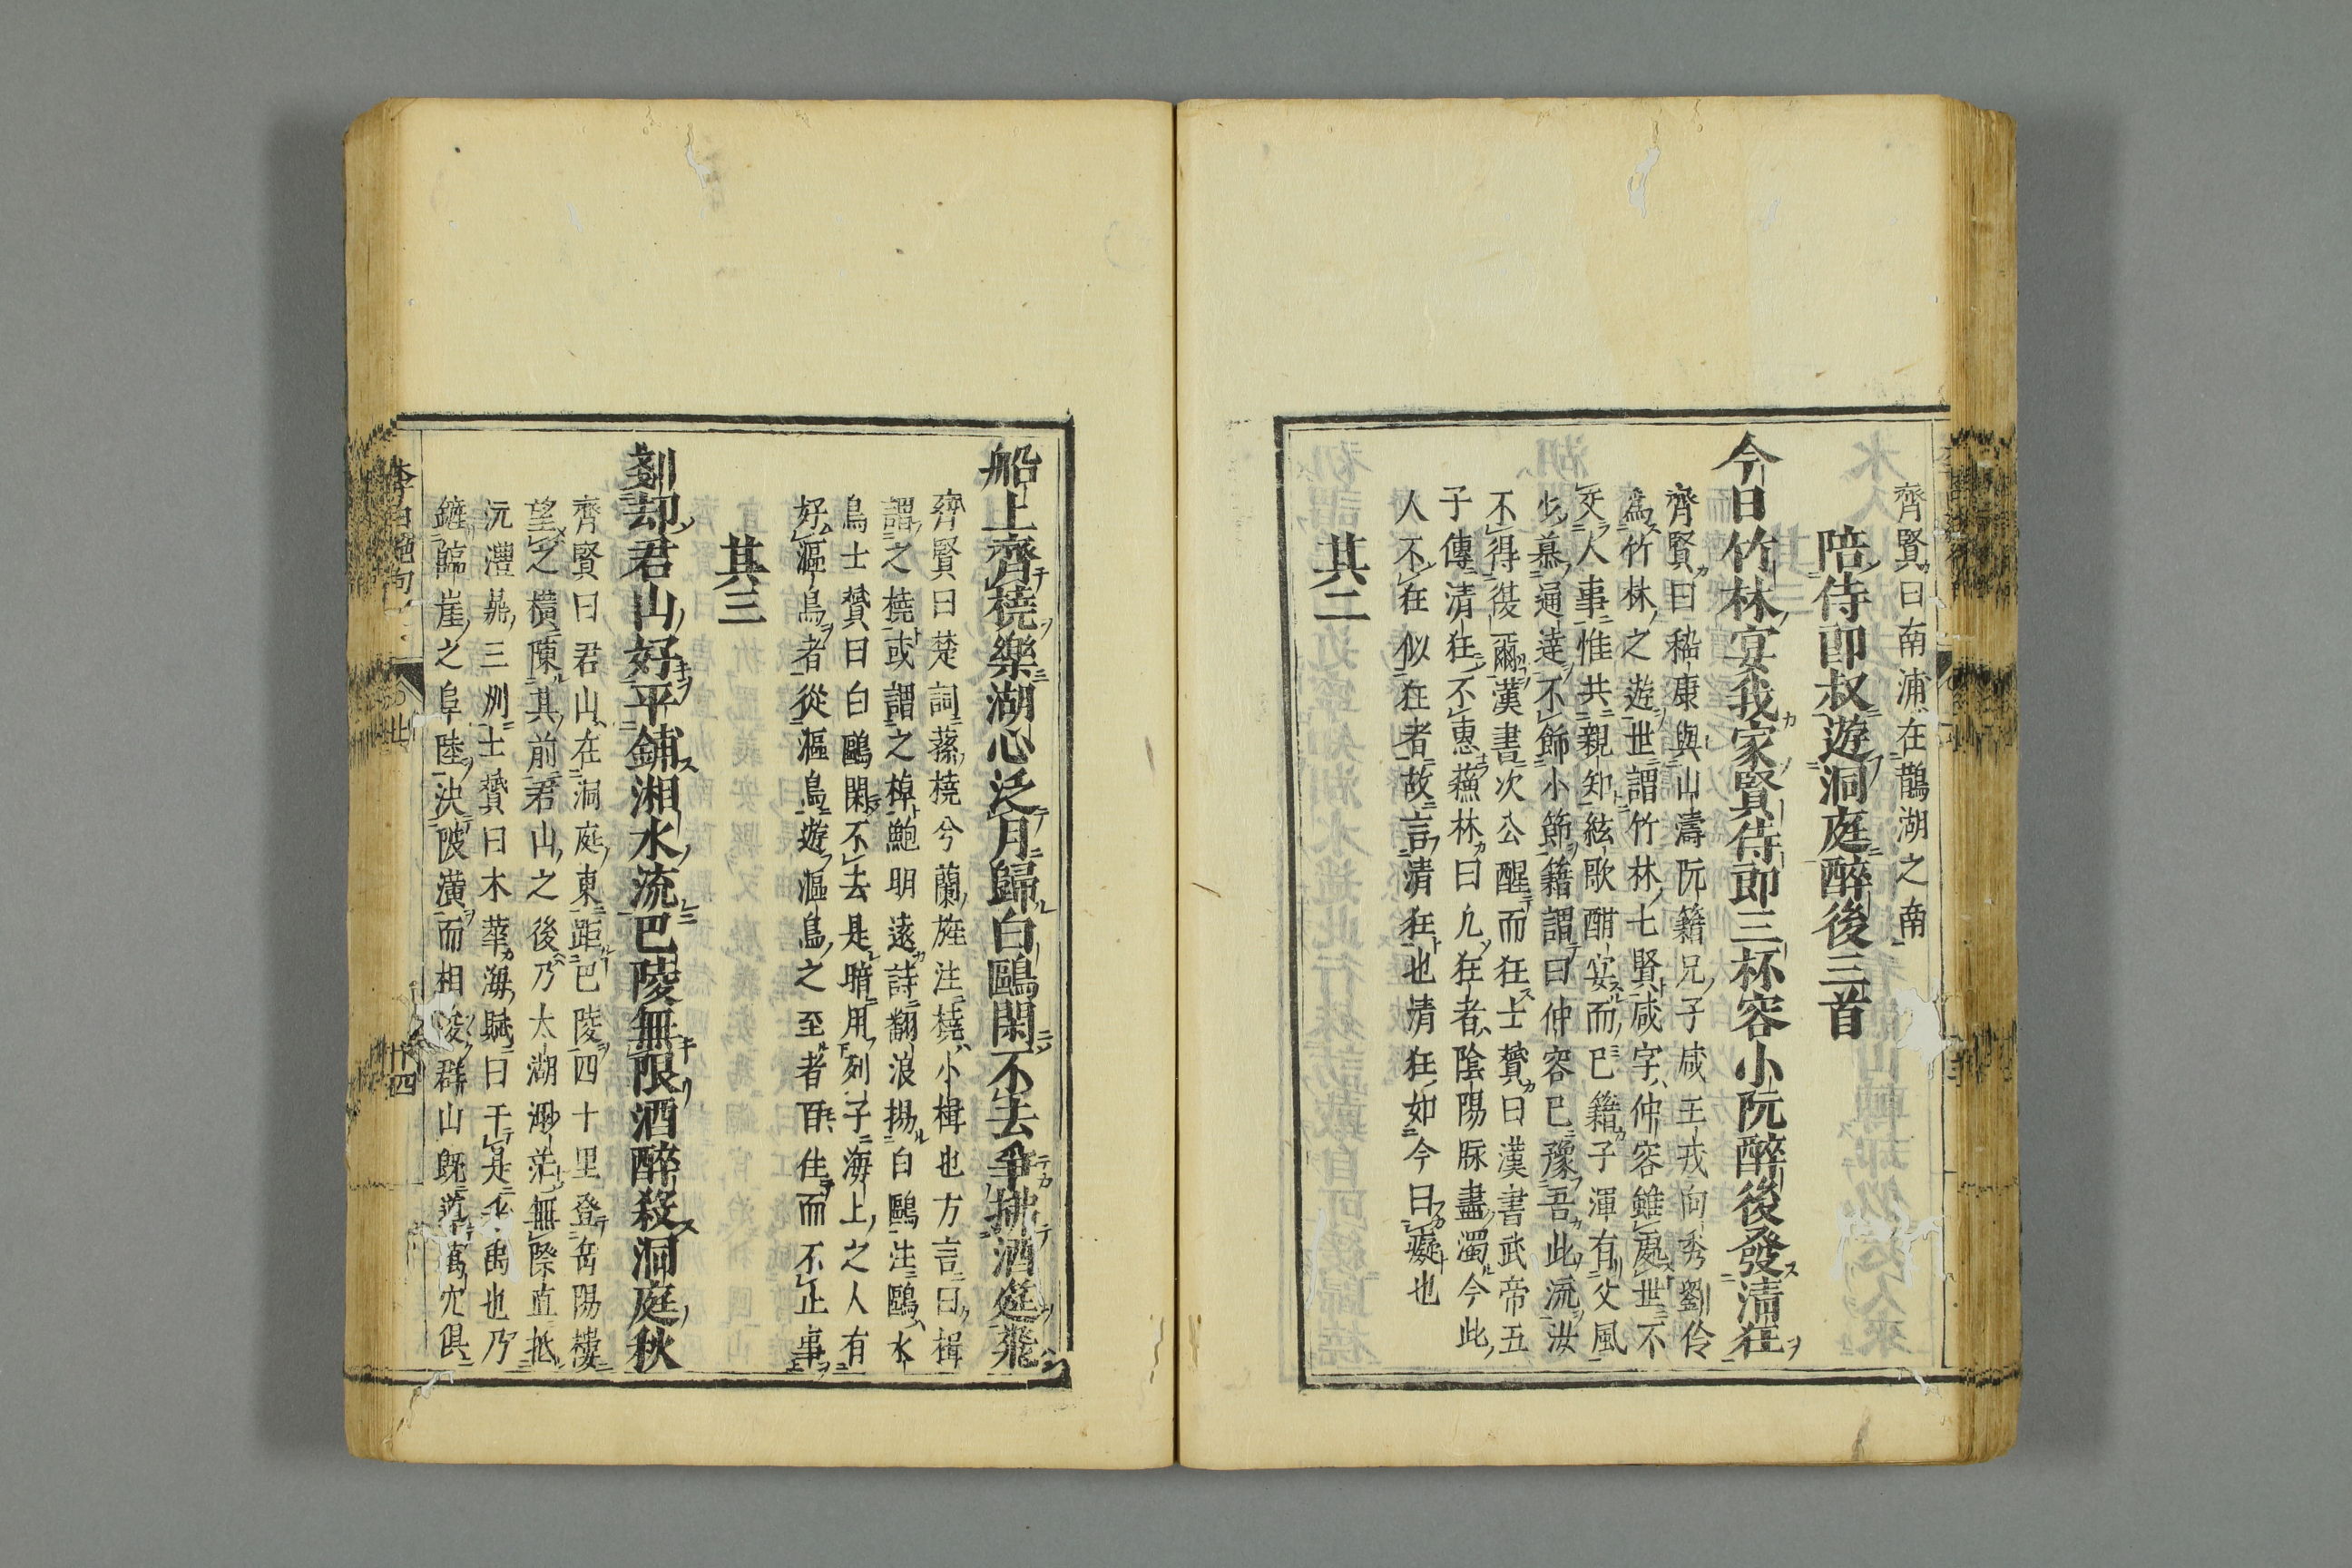 齊賢曰南浦在鵲湖之南
陪侍郎叔遊洞庭醉後三首
今日竹林宴我家賢侍郎三杯容小阮醉後發清狂
齊賢曰嵇康與山濤阮籍兄子咸王戎向秀劉伶
爲竹林之遊世謂竹林七賢咸字仲容雖處世不
交人事惟共親知絃歌酣宴而已籍子渾有父風
少慕通達不飾小節籍謂曰仲容已豫吾此流汝
不得復爾漢書次公醒而狂士贇曰漢書武帝五
子傳清狂不惠蘇林曰凡狂者陰陽脉盡濁今此
人不在似狂者故言清狂也清狂如今曰癡也
其二
船上齊橈樂湖心泛月歸白鷗閑不去爭拂酒筵飛
齊賢曰楚詞蓀橈兮蘭旌注橈小楫也方言曰楫
謂之橈或謂之棹鮑明遠詩翻浪揚白鷗注鷗水
鳥士贇曰白鷗閑不去是暗用列子海上之人有
好漚鳥者從漚鳥遊漚鳥之至者百住而不止事
其三
剗却君山好平鋪湘水流巴陵無限酒醉殺洞庭秋
齊賢曰君山在洞庭東距巴陵四十里登岳陽樓
望之橫陳其前君山之後乃太湖渺茫無際直抵
沅澧鼎三州士贇曰木華海賦曰于是乎禹也乃
鏟臨崖之阜陸決陂潢而相浚群山既萬穴俱
李白絶句
廿四